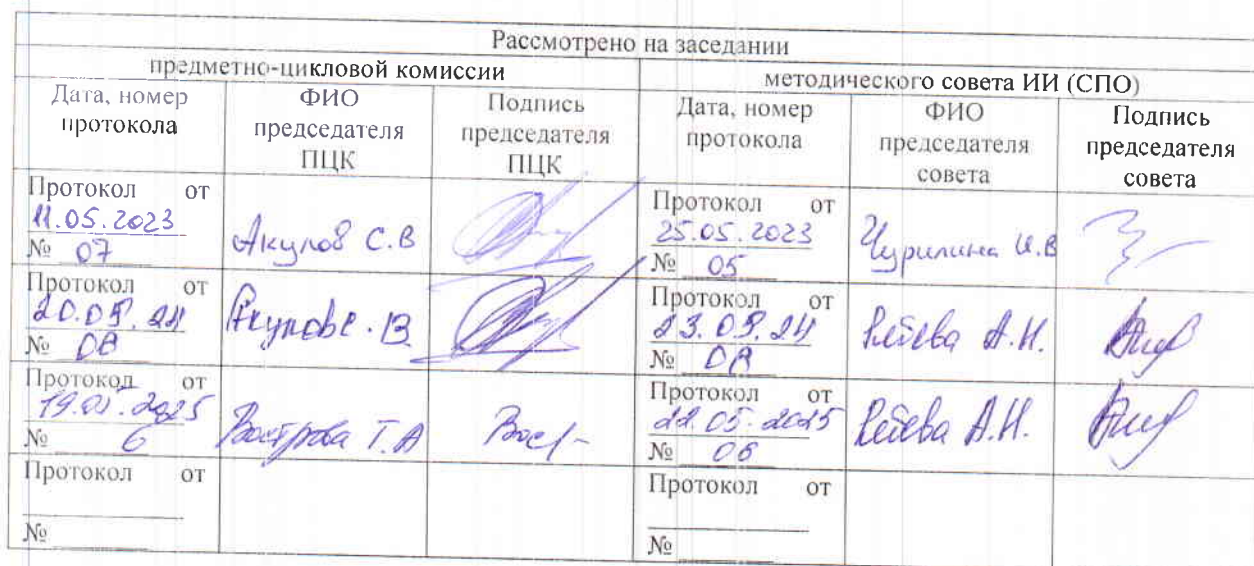 Рассмотрено на заседании
предметно-цикловой комиссии
методического совета ИИ (СПО)
Дата, номер протокола
ФИО председателя ПЦК
Подпись председателя ПЦК
Дата, номер протокола
ФИО председателя совета
Подпись председателя совета
Протокол от
11.05.2023
№ 07
Акулов С.В
Протокол от
25.05.2023
№ 05
Чурилина И.В
Протокол от
20.05.24
№ 08
Акулов С.В.
Протокол от
23.05.24
№
А.Н.
Протокол от
19.05.2025
№ 6
Вострова Т.А
Протокол от
22.05.2025
№ 06
А.Н.
Протокол от
№
Протокол от
№